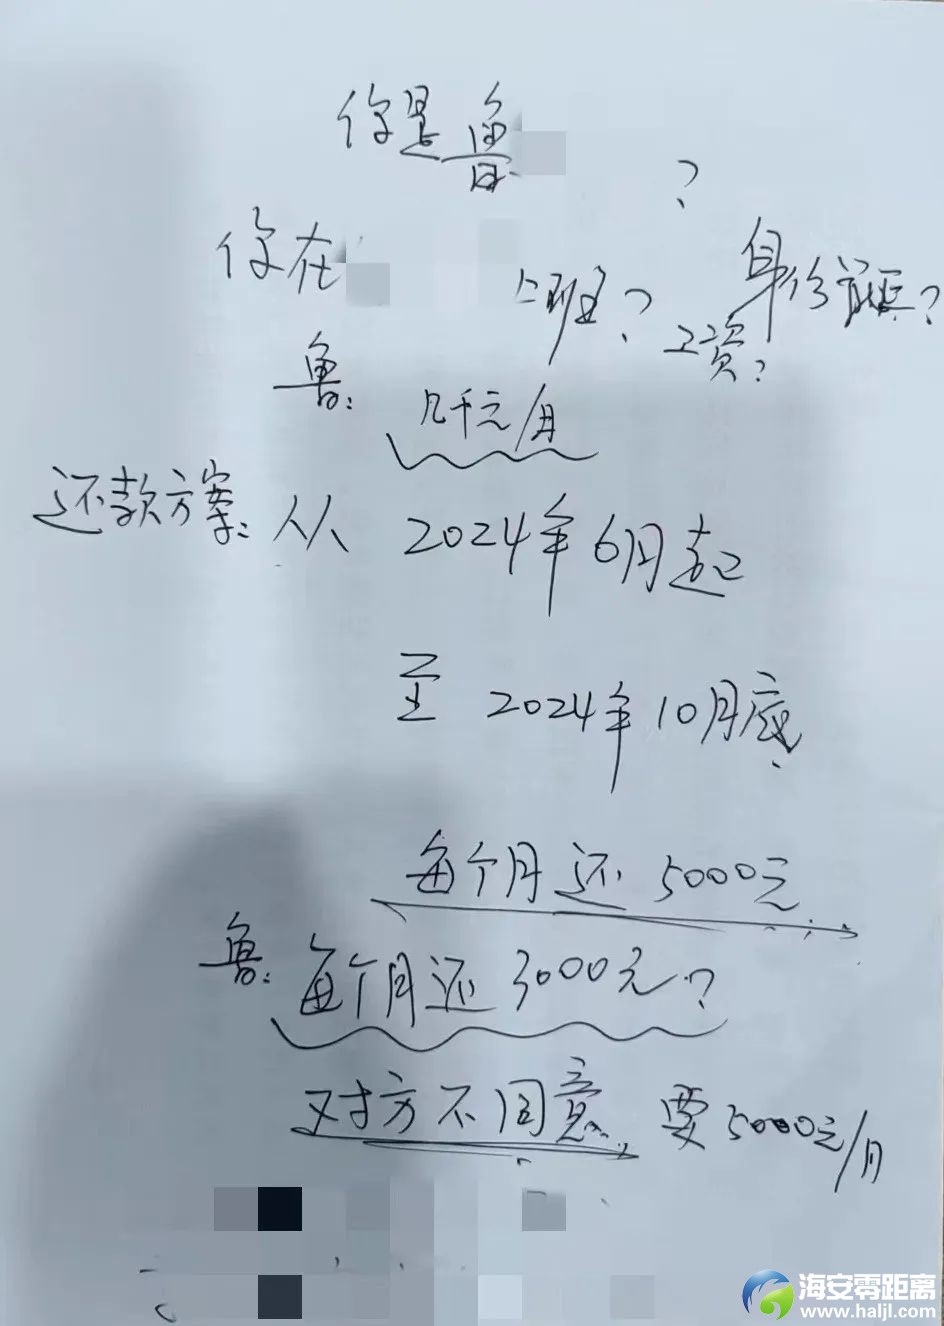 你是鲁
?
你在
上班? 身份证?
工资?
鲁: 几千元/月
还款方案: 从 2024年6月起
至 2024年10月底
每个月还5000元
鲁: 每个月还3000元?
对方不同意 要5000元/月
海安零距离
www.haljl.com